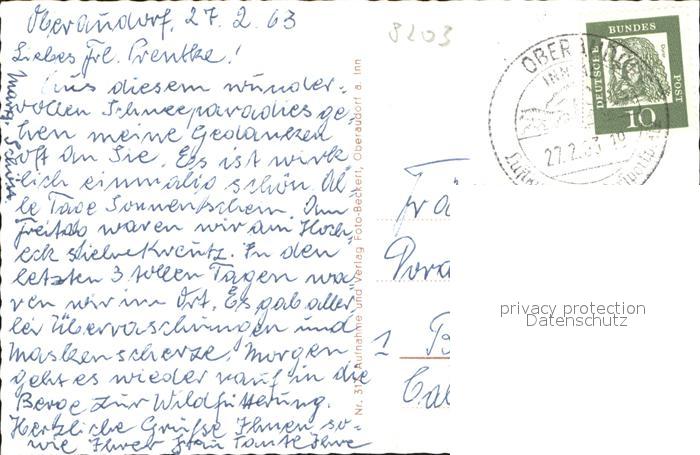 Oberaudorf, 27. 2. 63
Liebes Frl. Prentke!
Aus diesem wunder-
vollen Schneeparadies ge-
hen meine Gedanken
oft an Sie. Es ist wirk-
lich einmalig schön. Al-
le Tage Sonnenschein. Am
Freitag waren wir am Hoch-
eck . In den
letzten 3 tollen Tagen wa-
ren wir im Ort. Es gab aller-
lei Überraschungen und
Maskenscherze. Morgen
geht es wieder rauf in die
Berge zur Wildfütterung.
Herzliche Grüße Ihnen so-
wie Ihrer Frau Tante Ihre
Marg.
Nr. 317 Aufnahme und Verlag Foto-Beckert, Oberaudorf a. Inn
8203
DEUTSCHE BUNDES POST
10
OBERAUDORF
INN
27.2.63
Frä
1 B
privacy protection
Datenschutz